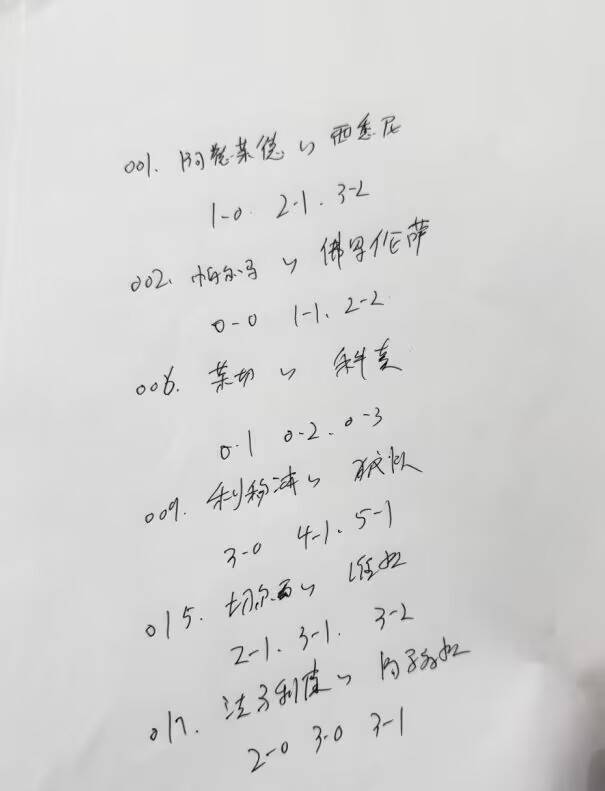 001. 阿德莱德 vs 西悉尼
1-0. 2-1. 3-2
002. 帕尔马 vs 佛罗伦萨
0-0 1-1. 2-2
006. 莱切 vs 科莫
0-1 0-2. 0-3
009. 利物浦 vs 狼队
3-0 4-1. 5-1
015. 切尔西 vs
2-1. 3-1. 3-2
017. vs
2-0 3-0 3-1